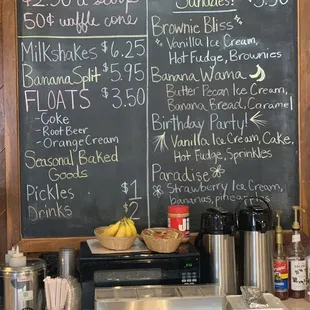 50¢ waffle cone
Milkshakes $6.25
Banana Split $5.95
FLOATS $3.50
- Coke
- Root Beer
- Orange Cream
Seasonal Baked
Goods
Pickles $1
Drinks $2
Sundaes!
Brownie Bliss
Vanilla Ice Cream,
Hot Fudge, Brownies
Banana Wama
Butter Pecan Ice Cream,
Banana Bread, Caramel
Birthday Party!
Vanilla Ice Cream, Cake,
Hot Fudge, Sprinkles
Paradise
Strawberry Ice Cream,
bananas,